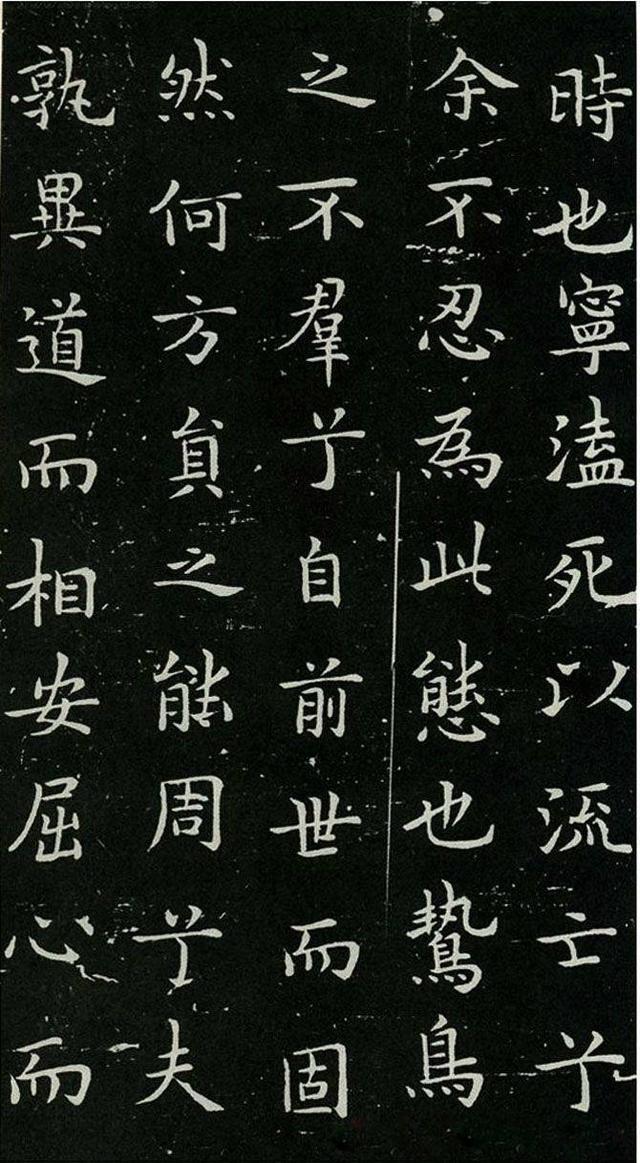 時也寧溘死以流亡兮
余不忍為此態也鷙鳥
之不羣兮自前世而固
然何方員之能周兮夫
孰異道而相安屈心而